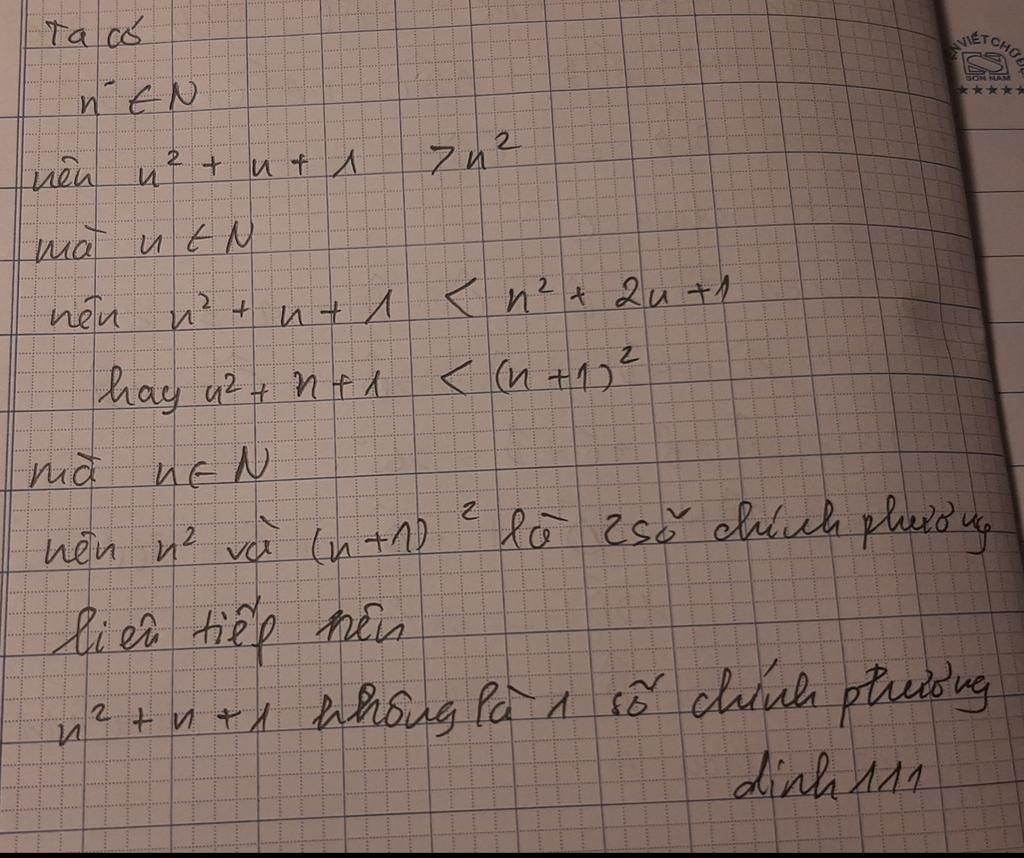 Ta có
n ∈ N
nên n² + n + 1 > n²
mà n ∈ N
nên n² + n + 1 < n² + 2n + 1
hay n² + n + 1 < (n + 1)²
mà n ∈ N
nên n² và (n + 1)² là 2 số chính phương
liên tiếp nên
n² + n + 1 không là 1 số chính phương
dinh 111
SON NAM